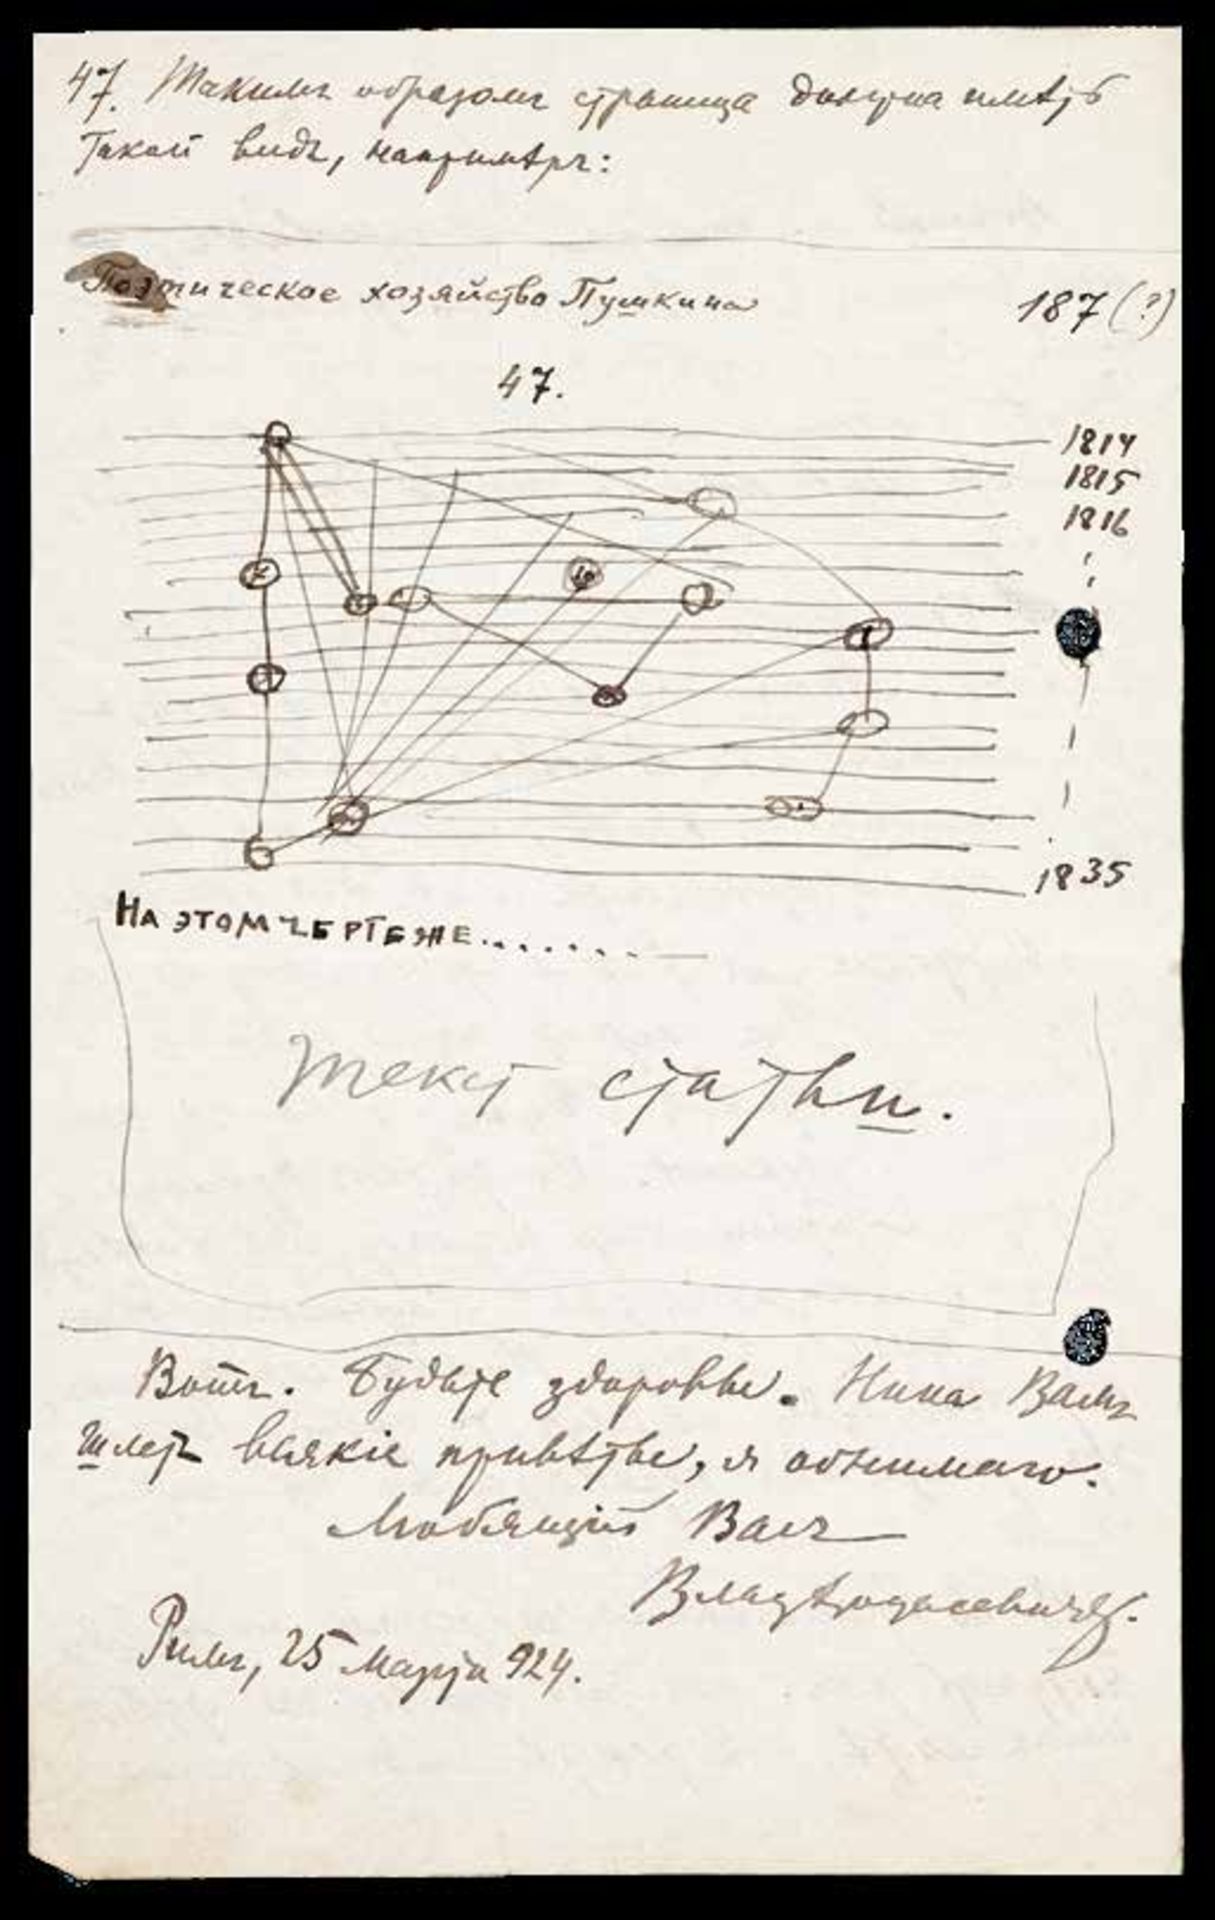 47. Такимъ образомъ страница должна имѣть
такой видъ, напримѣръ:
Поэтическое хозяйство Пушкина 187 (?)
47.
1814
1815
1816
1835
НА ЭТОМ ЧЕРТЕЖЕ.......
Текст статьи.
Вотъ. Будьте здоровы. Нина Вамъ
шлетъ всякіе привѣты, я обнимаю.
Любящій Васъ
Влад Ходасевичъ.
Римъ, 25 марта 924.